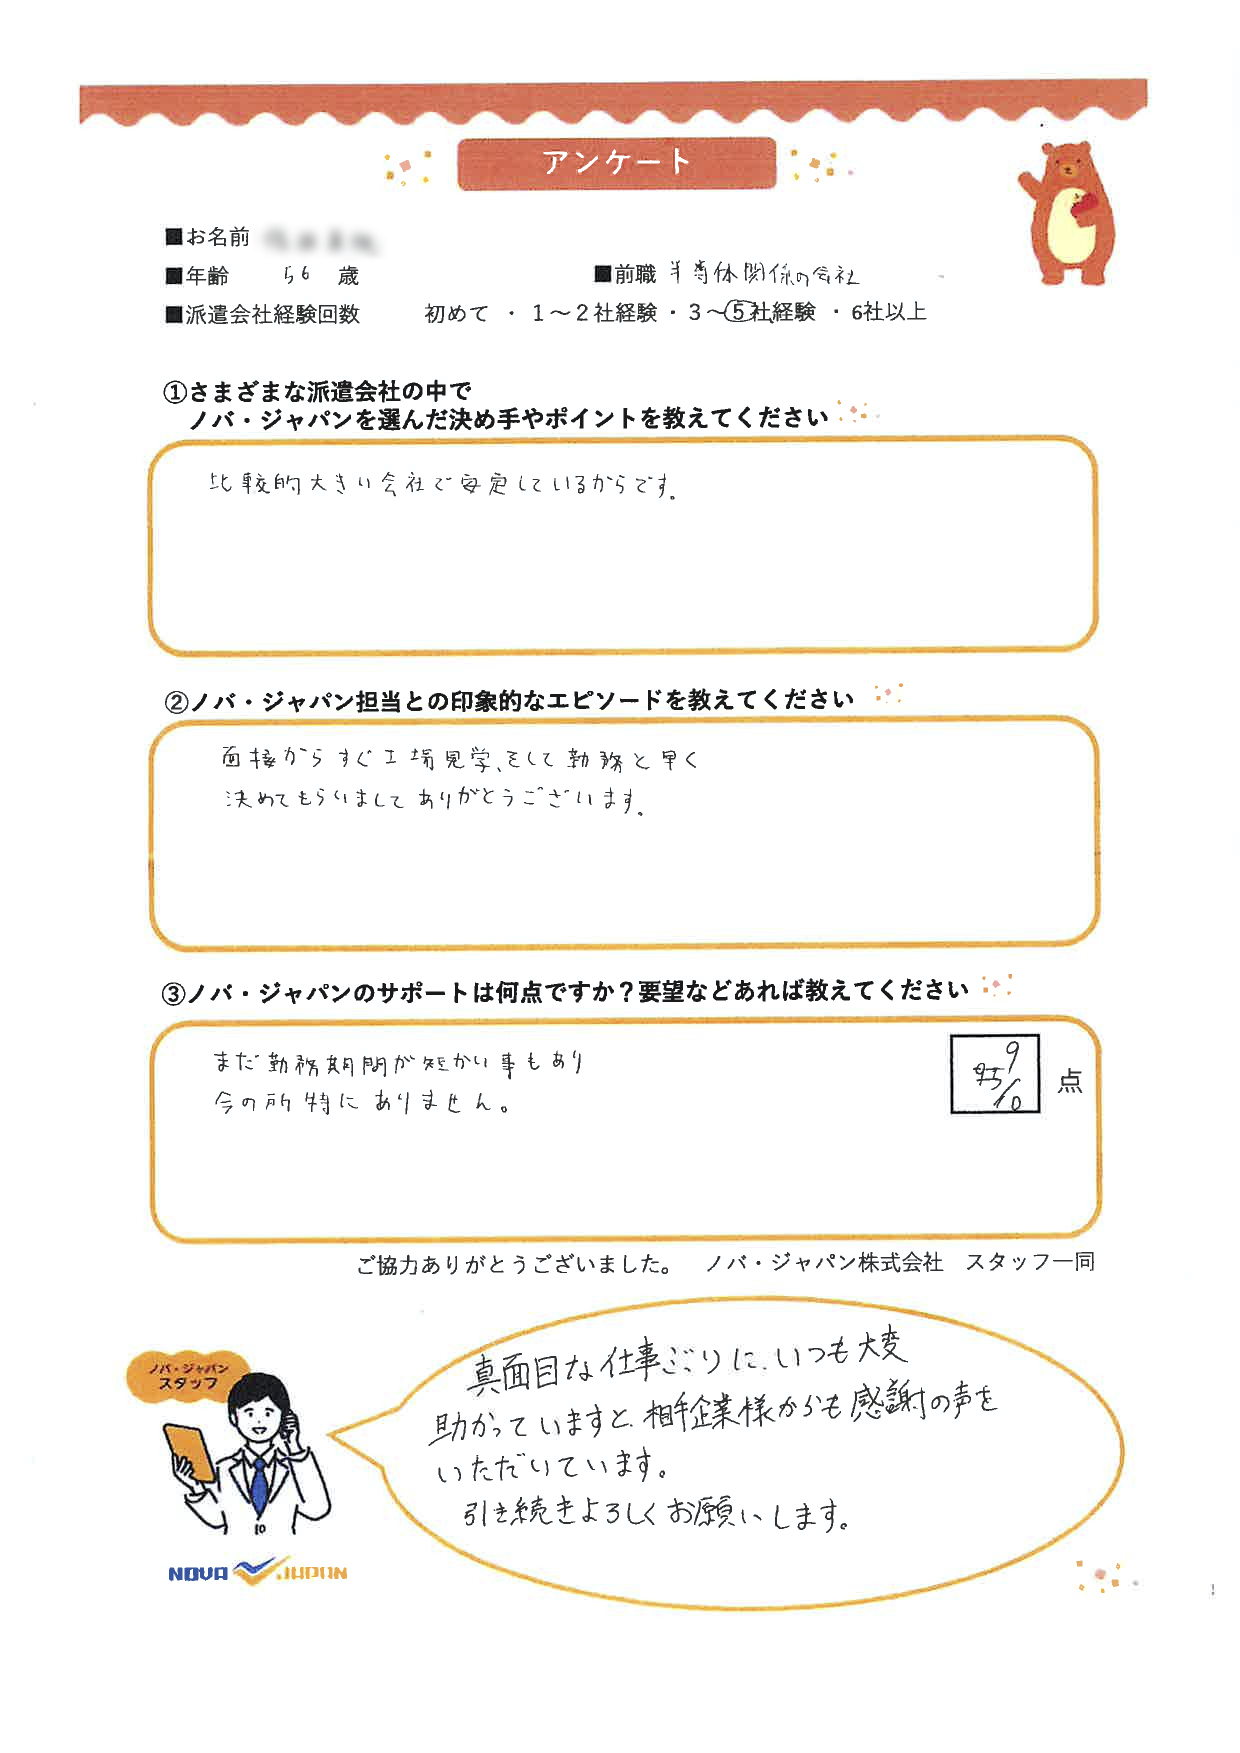 アンケート
■お名前
■年齢 56 歳 ■前職 半導体関係の会社
■派遣会社経験回数 初めて ・ 1～2社経験 ・ 3～⑤社経験 ・ 6社以上
①さまざまな派遣会社の中で
ノバ・ジャパンを選んだ決め手やポイントを教えてください
比較的大きい会社で安定しているからです。
②ノバ・ジャパン担当との印象的なエピソードを教えてください
面接からすぐ工場見学、そして勤務と早く
決めてもらいましてありがとうございます。
③ノバ・ジャパンのサポートは何点ですか？要望などあれば教えてください
まだ勤務期間が短かい事もあり
今の所特にありません。
9/10 点
ご協力ありがとうございました。 ノバ・ジャパン株式会社 スタッフ一同
ノバ・ジャパン
スタッフ
真面目な仕事ぶりに、いつも大変
助かっていますと、相手企業様からも感謝の声を
いただいています。
引き続きよろしくお願いします。
NOVA JAPAN